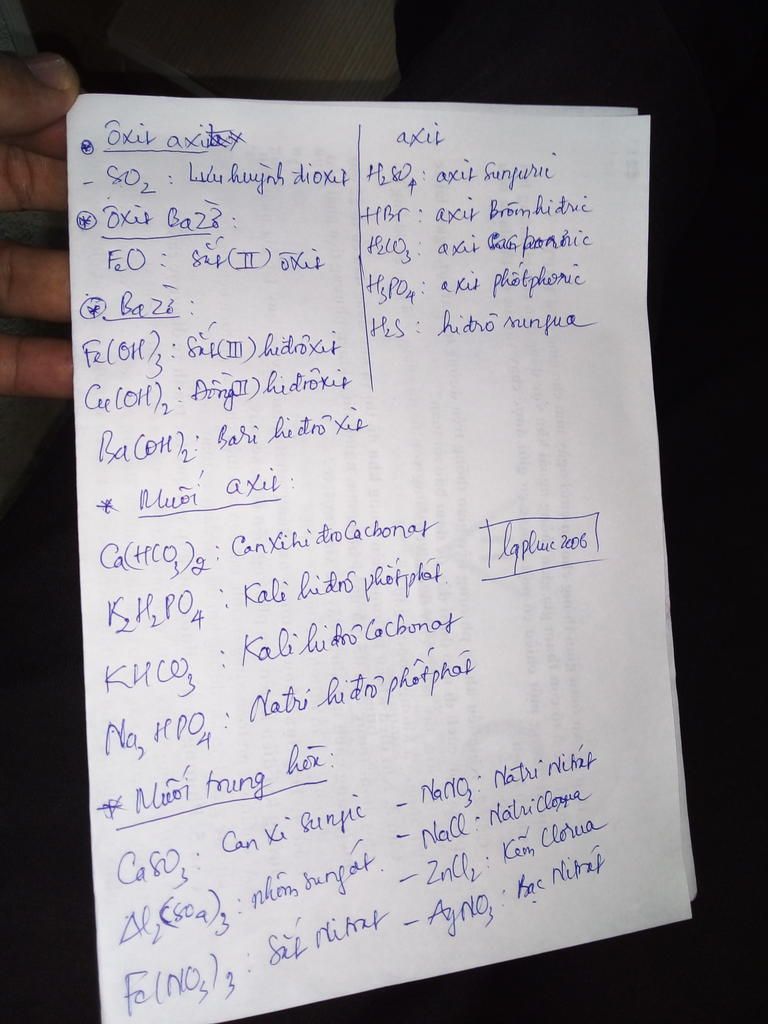 Ôxit axit
- SO2 : Lưu huỳnh đioxit
Ôxit Bazơ :
FeO : Sắt (II) ôxit
Bazơ :
Fe(OH)3 : Sắt (III) hiđrôxit
Cu(OH)2 : Đồng (II) hiđrôxit
Ba(OH)2 : Bari hiđrôxit
axit
H2SO4 : axit Sunfuric
HBr : axit Brômhiđric
H2CO3 : axit
H3PO4 : axit phôtphoric
H2S : hiđrô sunfua
* Muối axit :
Ca(HCO3)2 : Canxi hiđrocacbonat
K2H2PO4 : Kali hiđrô phôtphát
KHCO3 : Kali hiđrô Cacbonat
Na3HPO4 : Natri hiđrô phôtphát
lqphuc2006
* Muối trung hòa :
CaSO3 : Canxi Sunfic
Al2(SO4)3 : nhôm sungát.
Fe(NO3)3 : Sắt Nitrat
- NaNO3 : Natri Nitrát
- NaCl : Natri Clorua
- ZnCl2 : Kẽm Clorua
- AgNO3 : Bạc Nitrát